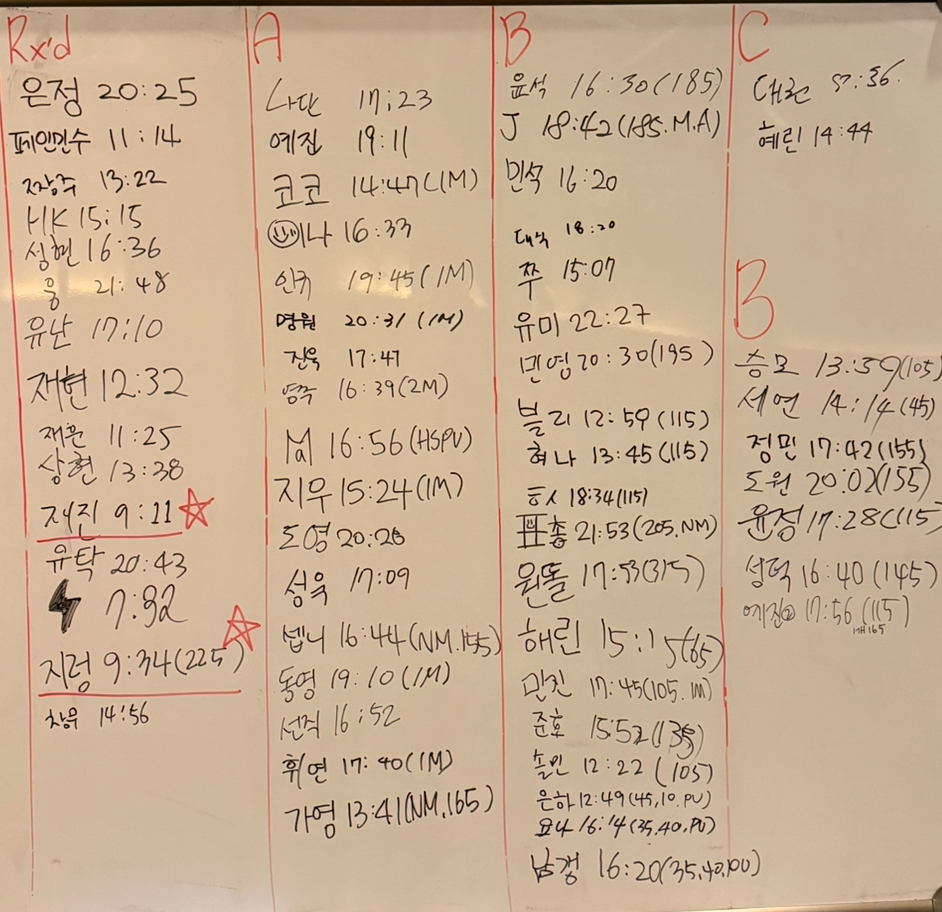 Rx'd
은정 20:25
페인민수 11:14
13:22
HK 15:15
성현 16:36
웅 21:48
유난 17:10
재현 12:32
재훈 11:25
상현 13:38
재진 9:11
유탁 20:43
7:32
지렁 9:34(225)
창유 14:56
A
나단 17:23
예진 19:11
코코 14:47(1M)
이나 16:33
인규 19:45(1M)
명원 20:31(1M)
진욱 17:47
영주 16:39(2M)
16:56(HSPU)
지우 15:24(1M)
도영 20:28
성욱 17:09
셉니 16:44(NM.155)
동영 19:10(1M)
선직 16:52
휘연 17:40(1M)
가영 13:41(NM.165)
B
윤석 16:30(185)
J 18:42(185.M.A)
민석 16:20
대식 18:20
쭈 15:07
유미 22:27
민영 20:30(195)
블리 12:59(115)
혀나 13:45(115)
18:34(115)
표총 21:53(205.NM)
원똘 17:53(315)
해린 15:15(65)
민진 17:45(105.1M)
준후 15:52(135)
솔민 12:22 (105)
은하 12:49(45,10.PU)
요나 16:14(35,40.PU)
남갱 16:20(35,40,PU)
C
57:36.
혜린 14:44
B
승모 13:59(105)
세연 14:14(45)
정민 17:42(155)
도원 20:02(155)
윤정 17:28(115)
성덕 16:40(145)
예진② 17:56(115)